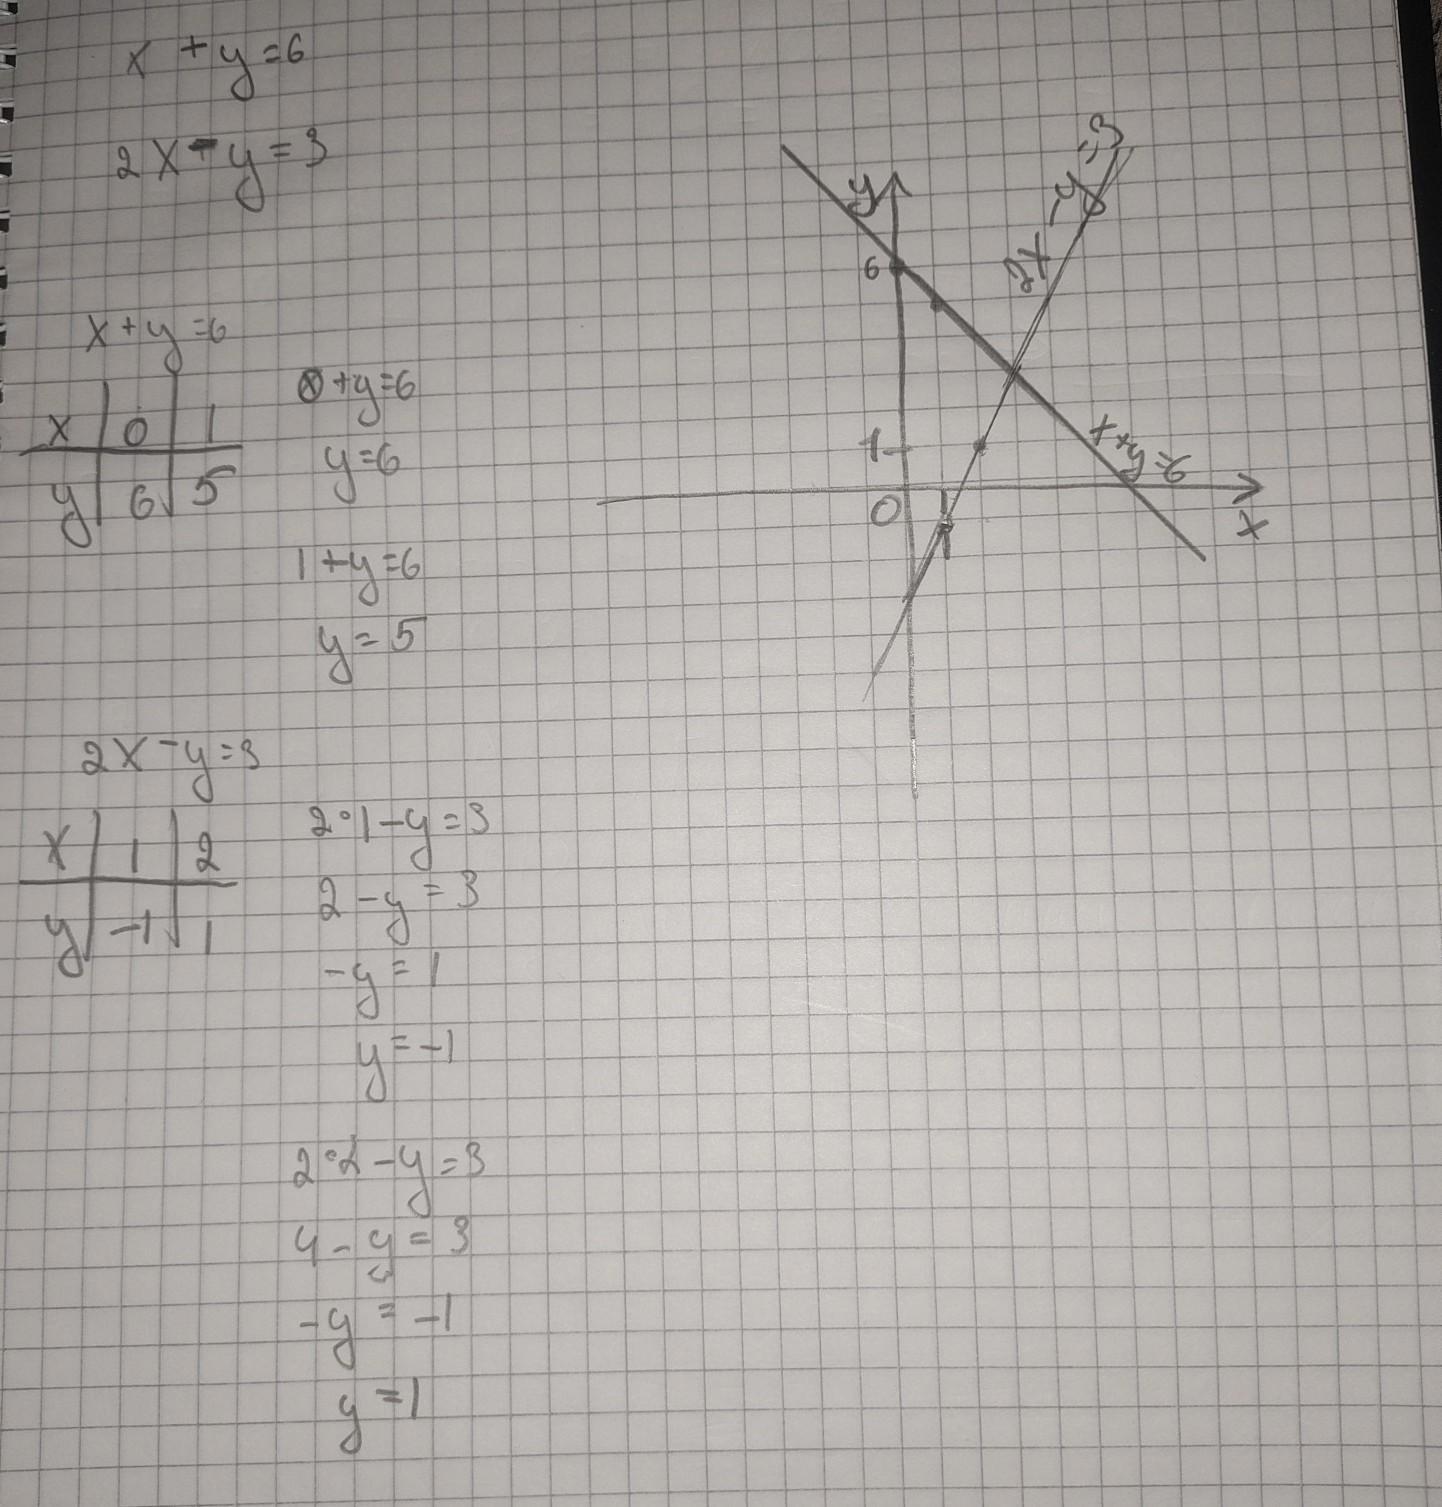 x + y = 6
2x - y = 3
x + y = 6
x | 0 | 1
y | 6 | 5
0 + y = 6
y = 6
1 + y = 6
y = 5
2x - y = 3
x | 1 | 2
y | -1 | 1
2·1 - y = 3
2 - y = 3
-y = 1
y = -1
2·2 - y = 3
4 - y = 3
-y = -1
y = 1
y
2x - y = 3
6
1
x + y = 6
0
1
x